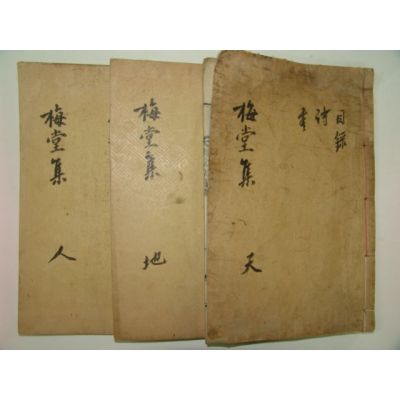 目録
詩
書
梅堂集 天
梅堂集 地
梅堂集 人